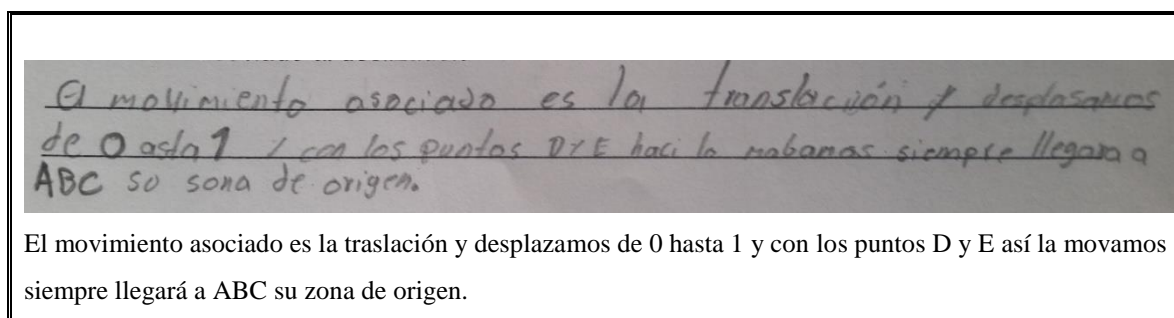 El movimiento asociado es la translación y desplasamos
de 0 asta 1 y con los puntos D Y E haci la mabamos siempre llegara a
ABC so sona de origen.
El movimiento asociado es la traslación y desplazamos de 0 hasta 1 y con los puntos D y E así la movamos
siempre llegará a ABC su zona de origen.